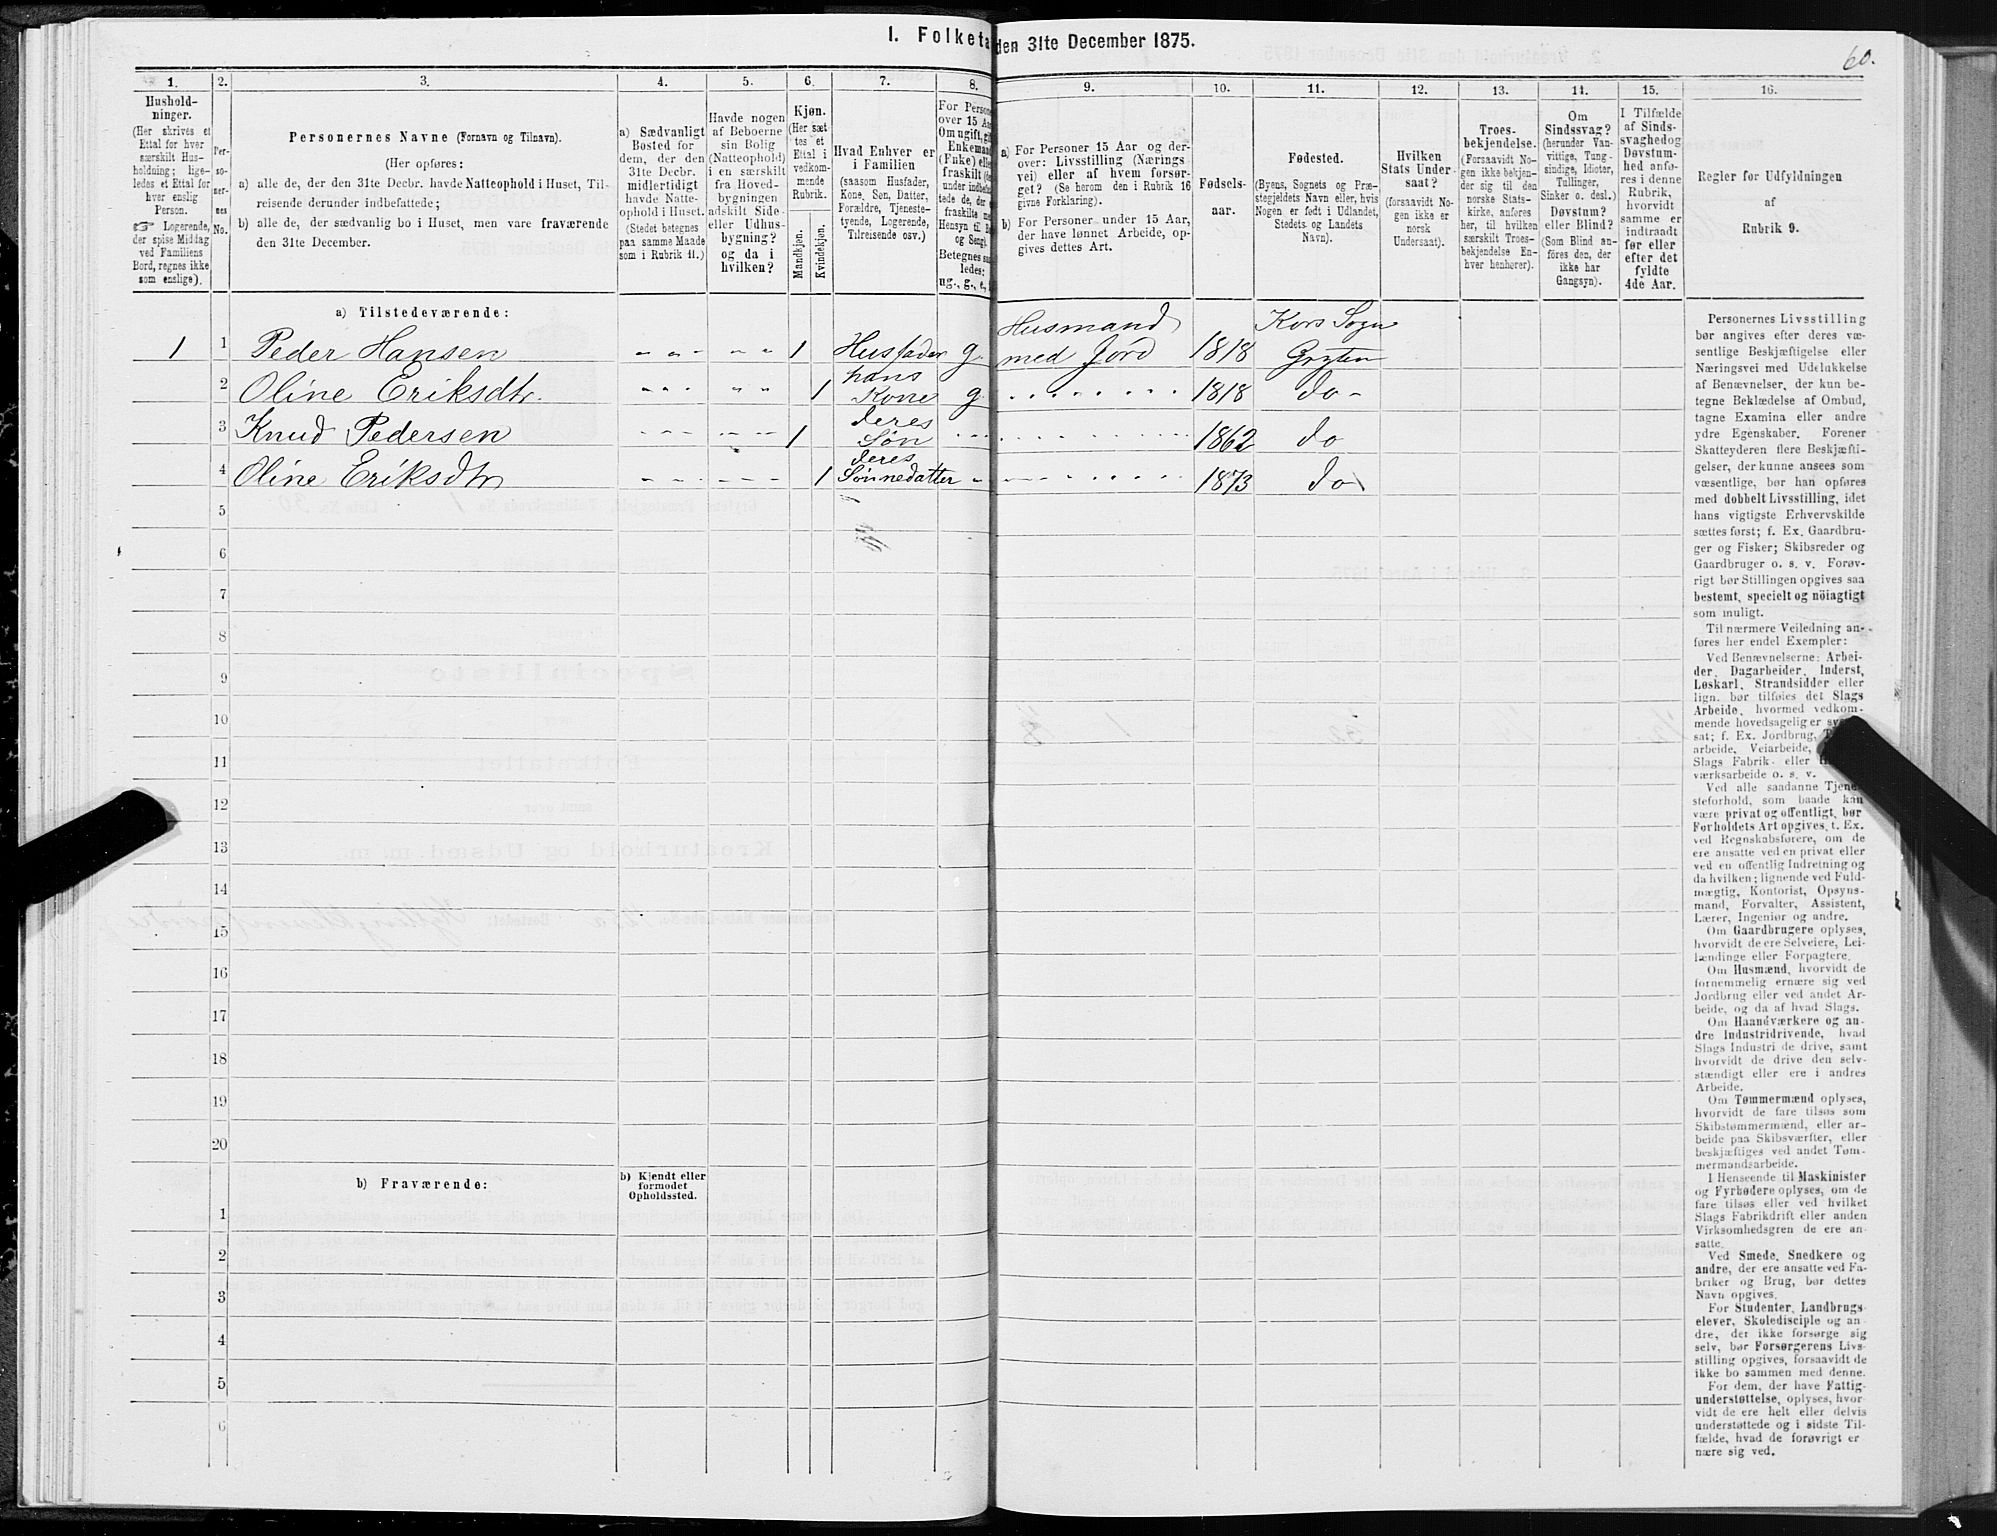 I. Folketa den 31te December 1875.
60.
1. 2. 3. 4. 5. 6. 7. 8. 9. 10. 11. 12. 13. 14. 15. 16.
Hushold-
ninger.
(Her skrives et
Ettal for hver
særskilt Hus-
holdning; lige-
ledes et Ettal for
hver enslig
Person.
Logerende,
der spise Middag
ved Familiens
Bord, regnes ikke
som enslige).
Per-
so-
ner-
nes
No.
Personernes Navne (Fornavn og Tilnavn).
(Her opføres:
a) alle de, der den 31te Decbr. havde Natteophold i Huset, Til-
reisende derunder indbefattede;
b) alle de, der sædvanlig bo i Huset, men vare fraværende
den 31te December.
a) Sædvanligt
Bosted for
dem, der den
31te Decbr.
midlertidigt
havde Natte-
ophold i Huset.
(Stedet betegnes
paa samme Maade
som i Rubrik 11.)
Havde nogen
af Beboerne
sin Bolig
(Natteophold)
i en særskilt
fra Hoved-
bygningen
adskilt Side-
eller Udhus-
bygning?
og da i
hvilken?
Kjøn.
(Her sæt-
tes et
Ettal i
vedkom-
mende
Rubrik.
Mandkjøn.
Kvindekjøn.
Hvad Enhver er
i Familien
(saasom Husfader,
Kone, Søn, Datter,
Forældre, Tjeneste-
tyende, Logerende,
Tilreisende osv.)
For Persone
over 15 Aa
Om ugift, gif
Enkemand
(Enke) elle
fraskilt (de
under indbefat-
tede de, der e
fraskilte me
Hensyn til Bo
og Seng).
Betegnes saa
ledes:
ug., g., e.,
a) For Personer 15 Aar og der-
over: Livsstilling (Nærings-
vei) eller af hvem forsør-
get? (Se herom den i Rubrik 16
givne Forklaring).
b) For Personer under 15 Aar,
der have lønnet Arbeide, op-
gives dettes Art.
Fødsels-
aar.
Fødested.
(Byens, Sognets og Præ-
stegjeldets Navn eller, hvis
Nogen er født i Udlandet,
Stedets og Landets
Navn).
Hvilken
Stats Under-
saat?
(forsaavidt No-
gen ikke er
norsk
Undersaat).
Troes-
bekjendelse.
(Forsaavidt No-
gen ikke bekjen-
der sig til den
norske Stats-
kirke, anføres
her, til hvilken
særskilt Troes-
bekjendelse En-
hver henhører).
Om
Sindssvag?
(herunder Van-
vittige, Tung-
sindige, Idioter,
Tullinger,
Sinker o. desl.)
Døvstum?
eller Blind?
(Som Blind an-
føres den, der
ikke har
Gangsyn).
I Tilfælde
af Sinds-
svaghedog
Døvstum-
hed anfø-
res i denne
Rubrik,
hvorvidt
samme er
indtraadt
før eller
efter det
fyldte
4de Aar.
Regler for Udfyldningen
af
Rubrik 9.
a) Tilstedeværende:
1 1 Peder Hansen 1 Husfader g. Husmand med Jord 1818 Kors Sogn Grytten
2 Oline Eriksdtr. 1 hans Kone g. 1818 do
3 Knud Pedersen 1 deres Søn 1862 do
4 Oline Eriksdtr 1 deres Sønnedatter 1873 do
5
6
7
8
9
10
11
12
13
14
15
16
17
18
19
20
b) Fraværende:
b) Kjendt eller
formodet
Opholdssted.
1
2
3
4
5
6
Personernes Livsstilling
bør angives efter deres væ-
sentlige Beskjæftigelse eller
Næringsvei med Udelukkelse
af Benævnelser, der kun be-
tegne Beklædelse af Ombud,
tagne Examina eller andre
ydre Egenskaber. Forener
Skatteyderen flere Beskjæfti-
gelser, der kunne ansees som
væsentlige, bør han opføres
med dobbelt Livsstilling, idet
hans vigtigste Erhvervskilde
sættes først; f. Ex. Gaardbru-
ger og Fisker; Skibsreder og
Gaardbruger o. s. v. Forøv-
rigt bør Stillingen opgives saa
bestemt, specielt og nøiagtigt
som muligt.
Til nærmere Veiledning an-
føres her endel Exempler:
Ved Benævnelserne: Arbei-
der, Dagarbeider, Inderst,
Løskarl, Strandsidder eller
lign. bør tilføies det Slags
Arbeide, hvormed vedkom-
mende hovedsagelig er
sat; f. Ex. Jordbrug,
arbeide, Veiarbeide,
Slags Fabrik- eller
værksarbeide o. s. v.
Ved alle saadanne Tjene-
steforhold, som baade kan
være privat og offentligt, bør
Forholdets Art opgives, t. Ex.
ved Regnskabsførere, om de
ere ansatte ved en privat eller
ved en offentlig Indretning og
da hvilken; lignende ved Fuld-
mægtig, Kontorist, Opsyns-
mand, Forvalter, Assistent,
Lærer, Ingeniør og andre.
Om Gaardbrugere oplyses,
hvorvidt de ere Selveiere, Lei-
lændinge eller Forpagtere.
Om Husmænd, hvorvidt de
fornemmelig ernære sig ved
Jordbrug eller ved andet Ar-
beide, og da af hvad Slags.
Om Haandværkere og an-
dre Industridrivende, hvad
Slags Industri de drive, samt
hvorvidt de drive den selv-
stændigt eller ere i andres
Arbeide.
Om Tømmermænd oplyses,
hvorvidt de fare tilsøs som
Skibstømmermænd, eller ar-
beide paa Skibsværfter, eller
beskjæftiges ved andet Tøm-
mermandsarbeide.
I Henseende til Maskinister
og Fyrbødere oplyses, om de
fare tilsøs eller ved hvilket
Slags Fabrikdrift eller anden
Virksomhedsgren de ere an-
satte.
Ved Smede, Snedkere og
andre, der ere ansatte ved Fa-
briker og Brug, bør dettes
Navn opgives.
For Studenter, Landbrugs-
elever, Skoledisciple og an-
dre, der ikke forsørge sig
selv, bør Forsørgerens Livs-
stilling opgives, forsaavidt de
ikke bo sammen med denne.
For dem, der have Fattig-
understøttelse, oplyses, hvor-
vidt de ere helt eller delvis
understøttede og i sidste Til-
fælde, hvad de forøvrigt er
nære sig ved.